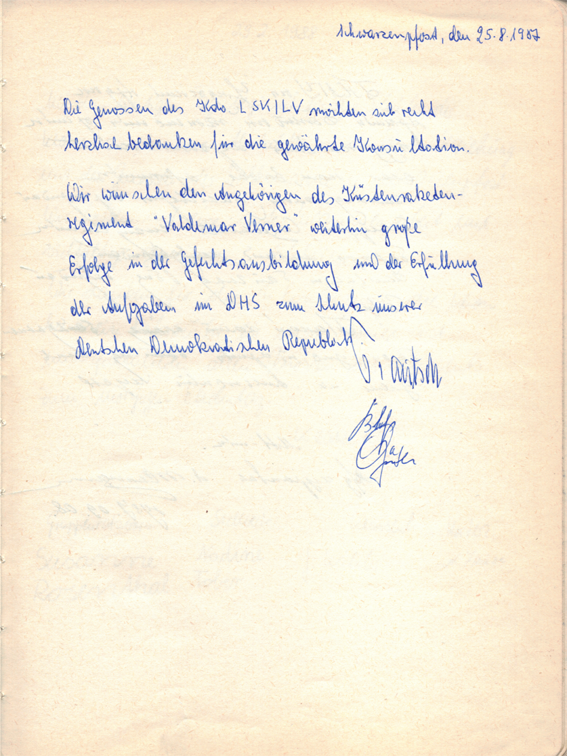 Schwarzenpfost, den 25.8.1987
Die Genossen des Kdo LSK/LV möchten sich recht
herzlich bedanken für die gewährte Konsultation.
Wir wünschen den Angehörigen des Küstenraketen-
regiment "Waldemar Verner" weiterhin große
Erfolge in der Gefechtsausbildung und der Erfüllung
der Aufgaben im DHS zum Schutz unserer
Deutschen Demokratischen Republik